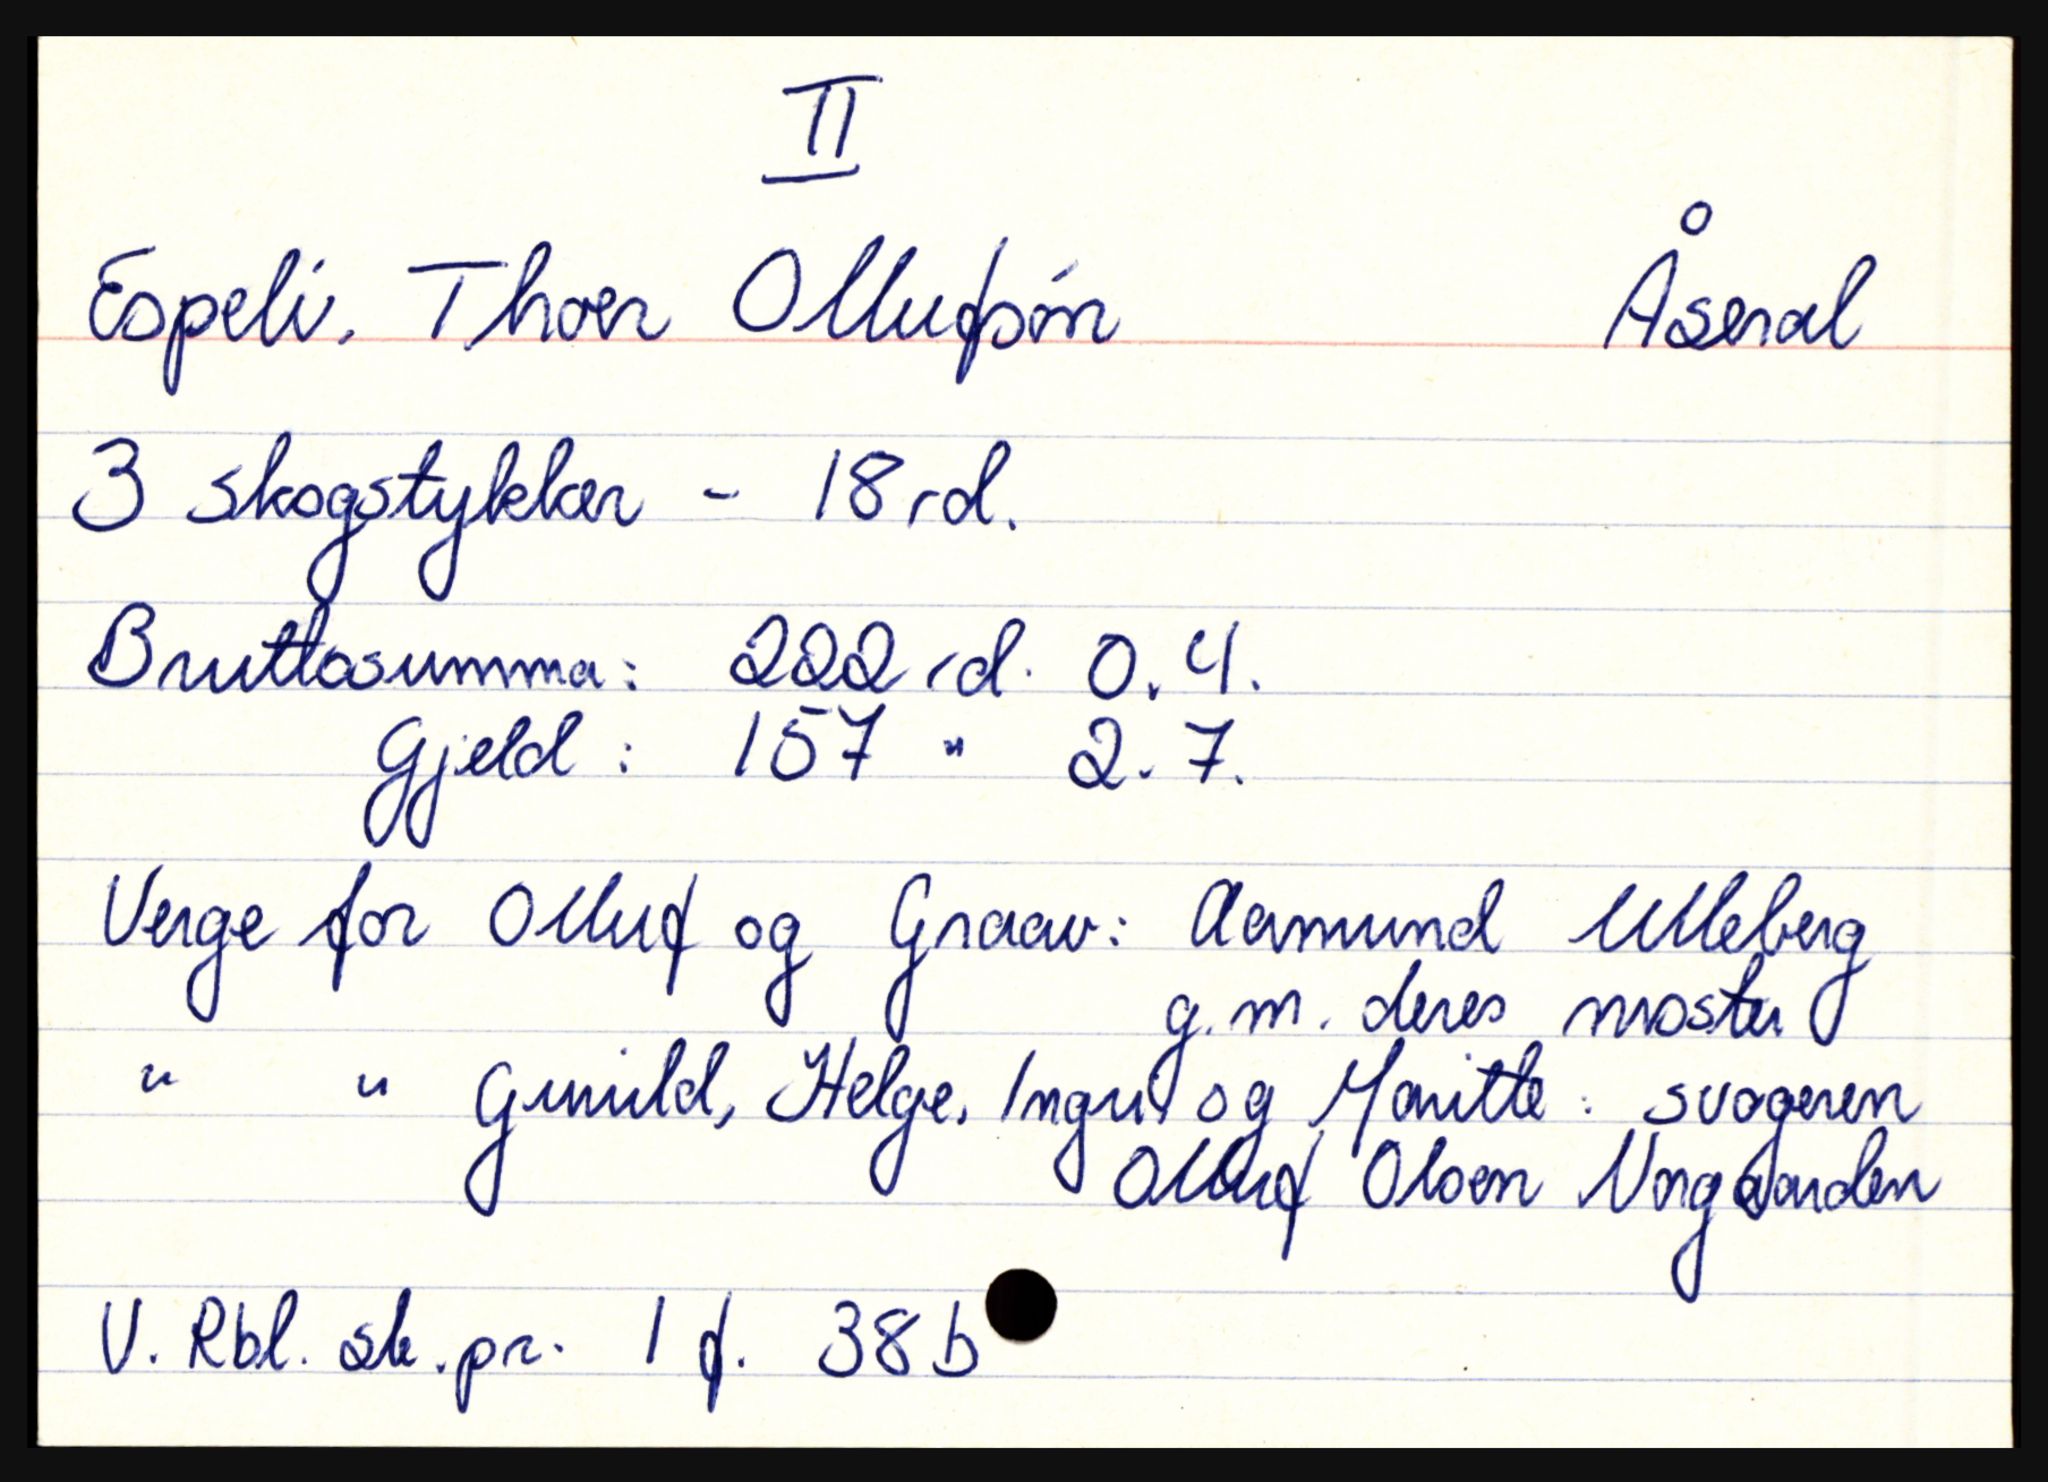 II
Espeli, Thoer Ollufsön Åseral
3 skogstykker - 18 rd.
Bruttosumma: 222 rd. 0.4.
Gjeld: 157 " 2.7.
Verge for Olluf og Graav: Aamund Ulleberg
g.m. deres moster
" " Gunild, Helge, Ingri og Maritte: svogeren
Olluf Olsen Norgaarden
V. Rbl. sk.pr. 1 f. 38b